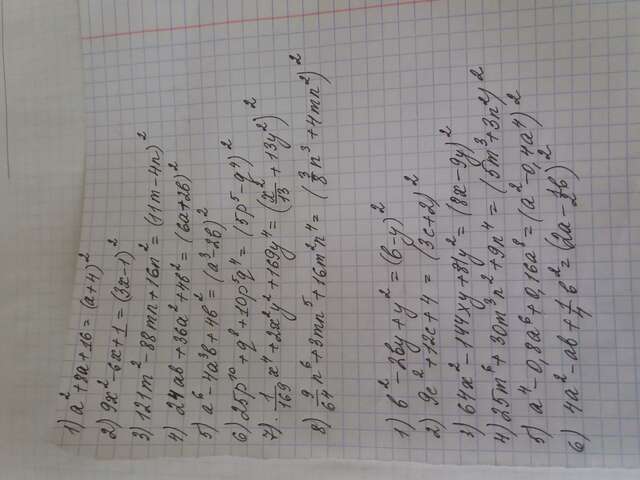 1) a² + 8a + 16 = (a+4)²
2) 9x² - 6x + 1 = (3x-1)²
3) 121m² - 88mn + 16n² = (11m - 4n)²
4) 24ab + 36a² + 4b² = (6a+2b)²
5) a⁶ - 4a³b + 4b² = (a³-2b)²
6) 25p¹⁰ + q⁸ + 10p⁵q⁴ = (5p⁵ - q⁴)²
7) 1/169 x⁴ + 2x²y² + 169y⁴ = (x²/13 + 13y²)²
8) 9/64 n⁶ + 3mn⁵ + 16m²n⁴ = (3/8 n³ + 4mn²)²
1) b² - 2by + y² = (b-y)²
2) 9c² + 12c + 4 = (3c+2)²
3) 64x² - 144xy + 81y² = (8x - 9y)²
4) 25m⁶ + 30m³n² + 9n⁴ = (5m³ + 3n²)²
5) a⁴ - 0,8a⁶ + 0,16a⁸ = (a² - 0,4a⁴)²
6) 4a² - ab + 1/4 b² = (2a - 1/2 b)²